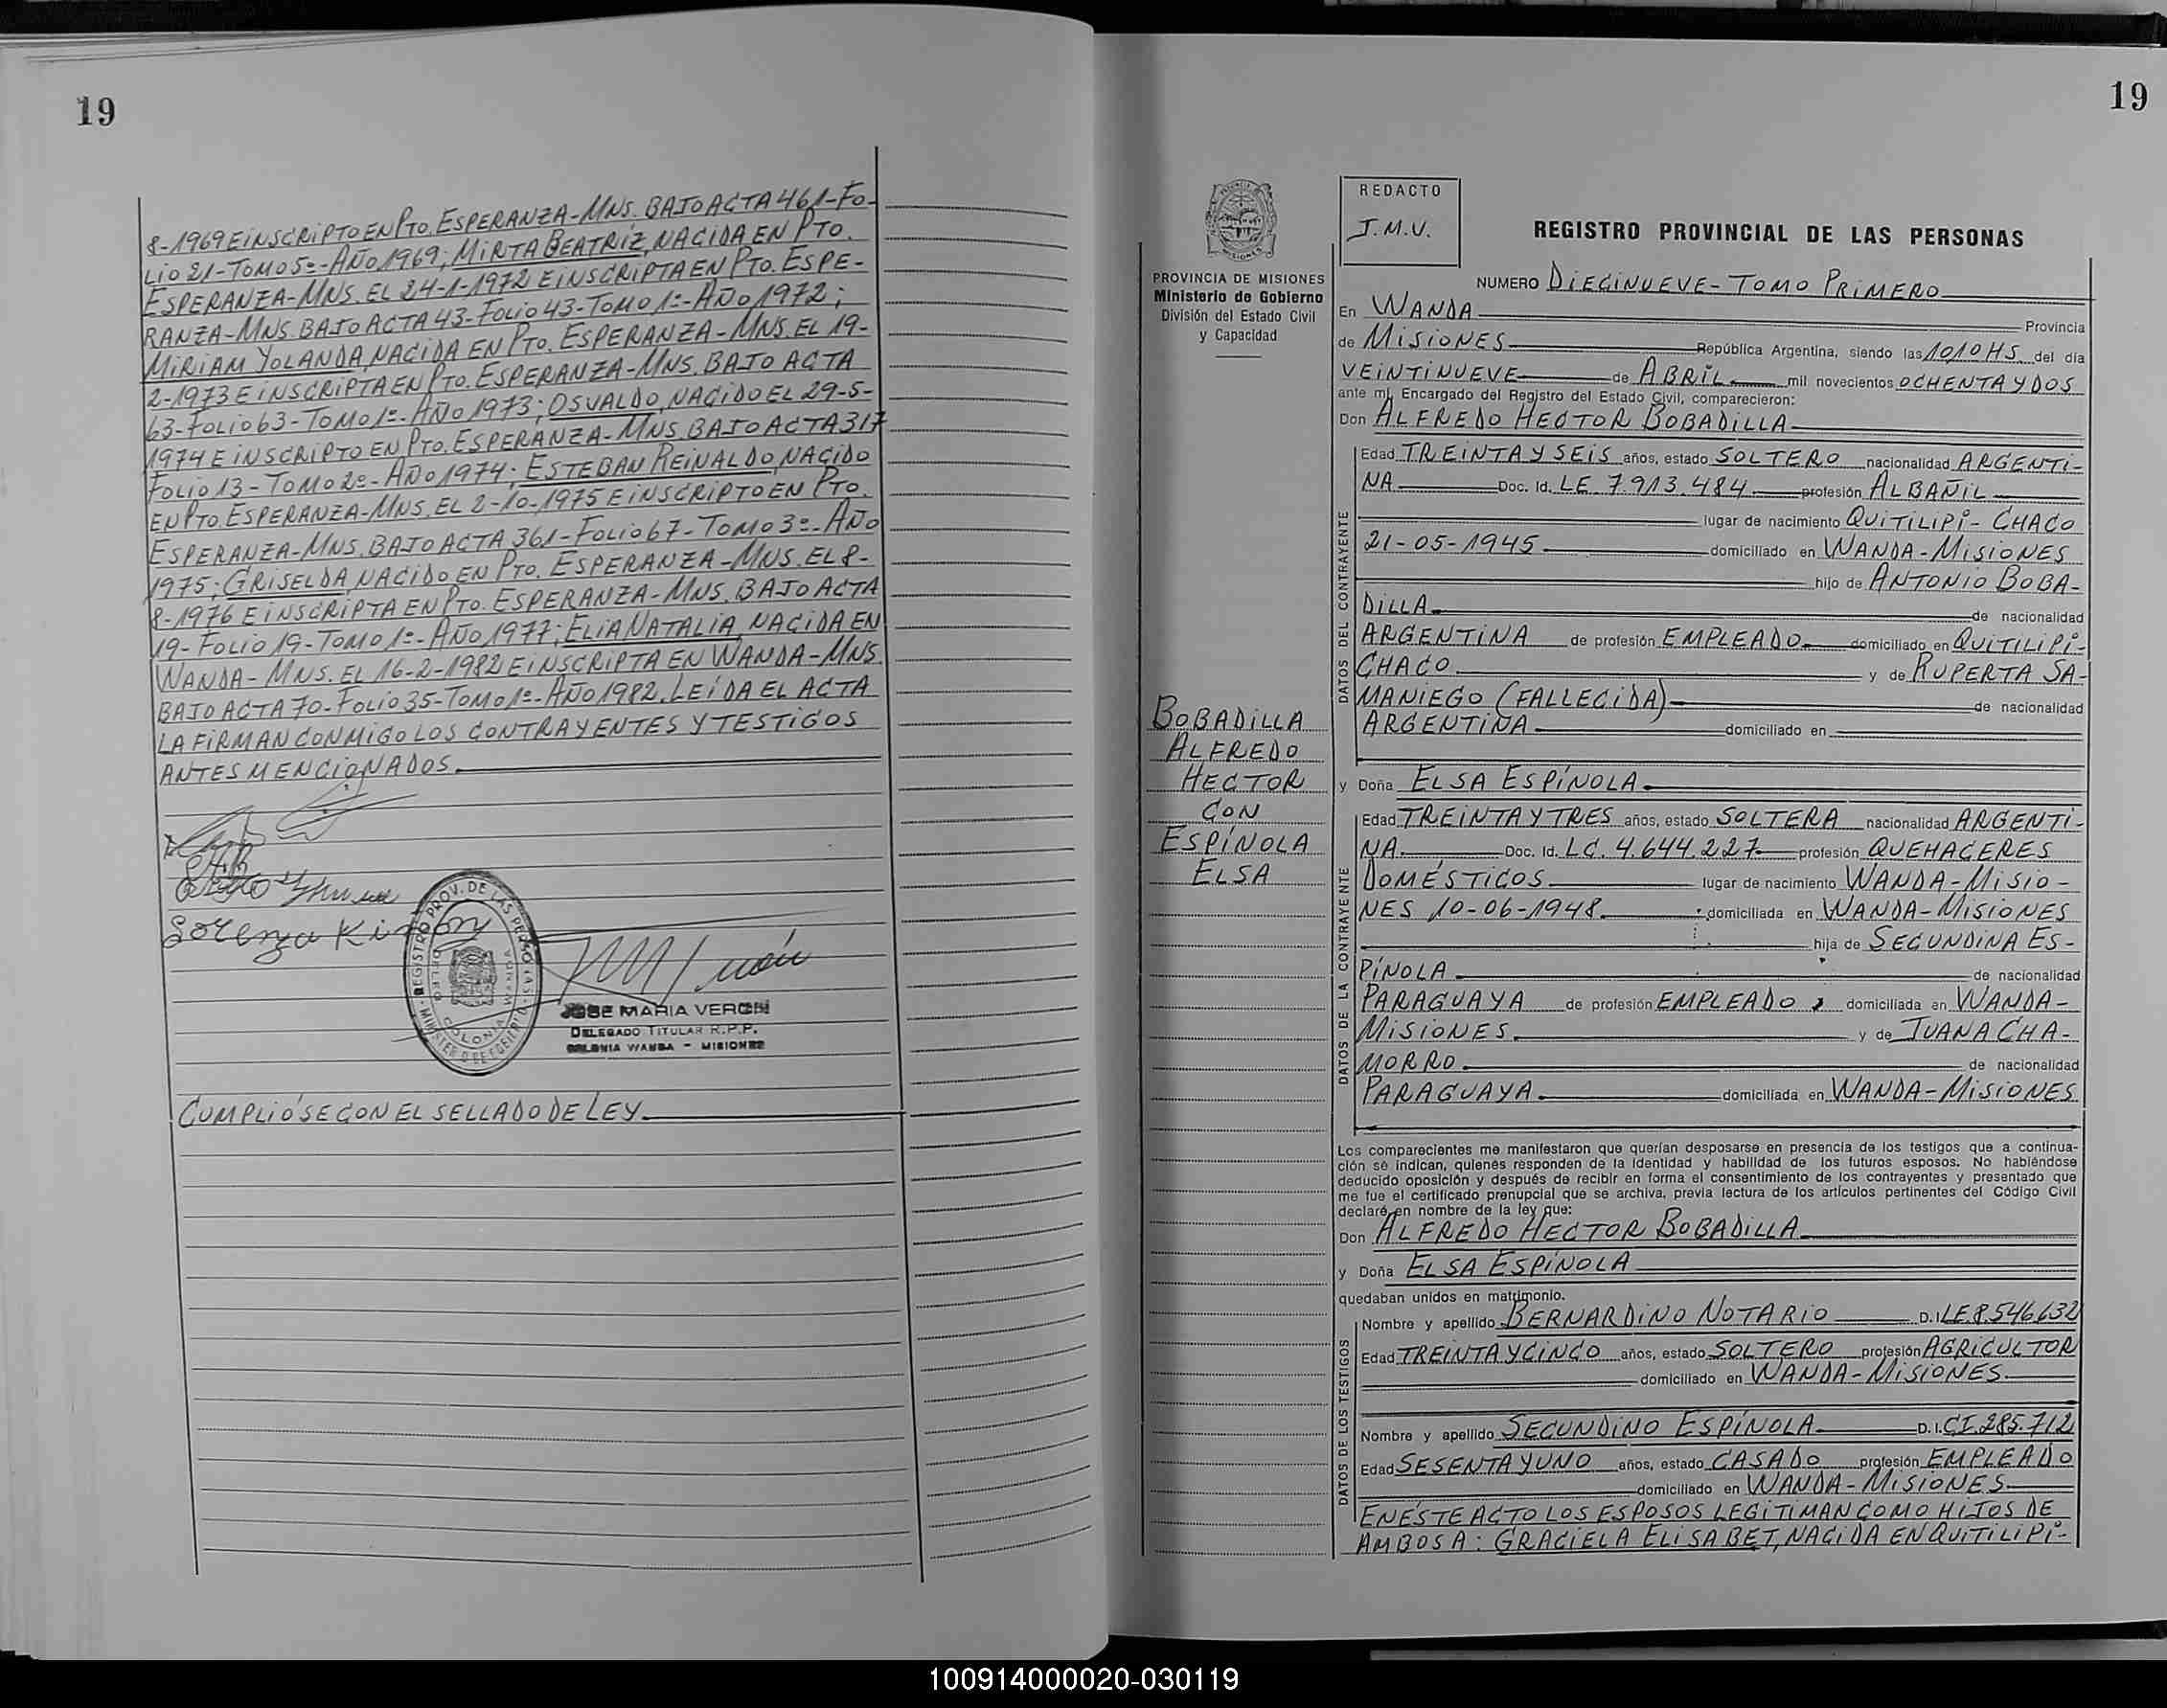 19
8-1969 E iNSCRiPTO EN PTO. ESPERANZA-MNS. BAJO ACTA 461-FO-
LIO 21-TOMO 5º-AÑO 1969; MiRTA BEATRIZ, NACIDA EN PTO.
ESPERANZA-MNS. EL 24-1-1972 E iNSCRiPTA EN PTO. ESPE-
RANZA-MNS. BAJO ACTA 43-FOLIO 43-TOMO 1º-AÑO 1972;
MiRiAM YOLANDA, NACIDA EN PTO. ESPERANZA-MNS. EL 19-
2-1973 E iNSCRiPTA EN PTO. ESPERANZA-MNS. BAJO ACTA
63-FOLIO 63-TOMO 1º-AÑO 1973; OSVALDO, NACIDO EL 29-5-
1974 E iNSCRiPTO EN PTO. ESPERANZA-MNS. BAJO ACTA 317
FOLIO 13-TOMO 2º-AÑO 1974; ESTEBAN REiNALDO, NACIDO
EN PTO. ESPERANZA-MNS. EL 2-10-1975 E iNSCRiPTO EN PTO.
ESPERANZA-MNS. BAJO ACTA 361-FOLIO 67-TOMO 3º-AÑO
1975; GRiSELDA, NACIDO EN PTO. ESPERANZA-MNS. EL 8-
8-1976 E iNSCRiPTA EN PTO. ESPERANZA-MNS. BAJO ACTA
19-FOLIO 19-TOMO 1º-AÑO 1977; ELiA NATALiA, NACIDA EN
WANDA-MNS. EL 16-2-1982 E iNSCRiPTA EN WANDA-MNS.
BAJO ACTA 70-FOLIO 35-TOMO 1º-AÑO 1982. LEIDA EL ACTA
LA FiRMAN CONMiGO LOS CONTRAYENTES Y TESTiGOS
ANTES MENCiONADOS.
REGISTRO PROV. DE LAS PERSONAS
COLONIA WANDA
JOSE MARIA VERON
DELEGADO TITULAR R.P.P.
COLONIA WANDA - MISIONES
CUMPLiÓSE CON EL SELLADO DE LEY.
19
PROVINCIA DE MISIONES
Ministerio de Gobierno
División del Estado Civil
y Capacidad
REDACTO
J.M.V.
REGISTRO PROVINCIAL DE LAS PERSONAS
NUMERO DiECiNUEVE-TOMO PRiMERO
En WANDA Provincia
de MiSiONES República Argentina, siendo las 1010 HS. del día
VEiNTiNUEVE de ABRiL mil novecientos OCHENTA Y DOS
ante mí, Encargado del Registro del Estado Civil, comparecieron:
Don ALFREDO HECTOR BOBADiLLA
DATOS DEL CONTRAYENTE
Edad TREiNTA Y SEiS años, estado SOLTERO nacionalidad ARGENTi-
NA Doc. Id. LE 7.913.484 profesión ALBAÑiL
lugar de nacimiento QUiTiLiPi-CHACO
21-05-1945 domiciliado en WANDA-MiSiONES
hijo de ANTONiO BOBA-
DiLLA de nacionalidad
ARGENTiNA de profesión EMPLEADO domiciliado en QUiTiLiPi-
CHACO y de RUPERTA SA-
MANiEGO (FALLECiDA) de nacionalidad
ARGENTiNA domiciliado en
BOBADiLLA
ALFREDO
HECTOR
CON
ESPÍNOLA
ELSA
y Doña ELSA ESPÍNOLA
DATOS DE LA CONTRAYENTE
Edad TREiNTA Y TRES años, estado SOLTERA nacionalidad ARGENTi-
NA Doc. Id. LC. 4.644.227 profesión QUEHACERES
DOMÉSTiCOS lugar de nacimiento WANDA-MiSiO-
NES 10-06-1948 domiciliada en WANDA-MiSiONES
hija de SECUNDiNA ES-
PÍNOLA de nacionalidad
PARAGUAYA de profesión EMPLEADO domiciliada en WANDA-
MiSiONES y de JUANA CHA-
MORRO de nacionalidad
PARAGUAYA domiciliada en WANDA-MiSiONES
Los comparecientes me manifestaron que querían desposarse en presencia de los testigos que a continua-
ción se indican, quienes responden de la identidad y habilidad de los futuros esposos. No habiéndose
deducido oposición y después de recibir en forma el consentimiento de los contrayentes y presentado que
me fue el certificado prenupcial que se archiva, previa lectura de los artículos pertinentes del Código Civil
declaré en nombre de la ley que:
Don ALFREDO HECTOR BOBADiLLA
y Doña ELSA ESPÍNOLA
quedaban unidos en matrimonio.
DATOS DE LOS TESTIGOS
Nombre y apellido BERNARDiNO NOTARiO D.I. LE 8.546.632
Edad TREiNTA Y CiNCO años, estado SOLTERO profesión AGRiCULTOR
domiciliado en WANDA-MiSiONES
Nombre y apellido SECUNDiNO ESPÍNOLA D.I. CI. 285.712
Edad SESENTA Y UNO años, estado CASADO profesión EMPLEADO
domiciliado en WANDA-MiSiONES
EN ÉSTE ACTO LOS ESPOSOS LEGiTiMAN COMO HiJOS DE
AMBOS A: GRACiELA ELiSABET, NACiDA EN QUiTiLiPi-
100914000020-030119